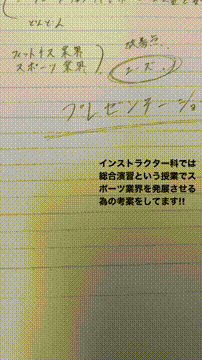 どんどん
フィットネス業界
スポーツ業界
改善点
ニーズ
プレゼンテーショ
インストラクター科では
総合演習という授業でス
ポーツ業界を発展させる
為の考案をしてます!!